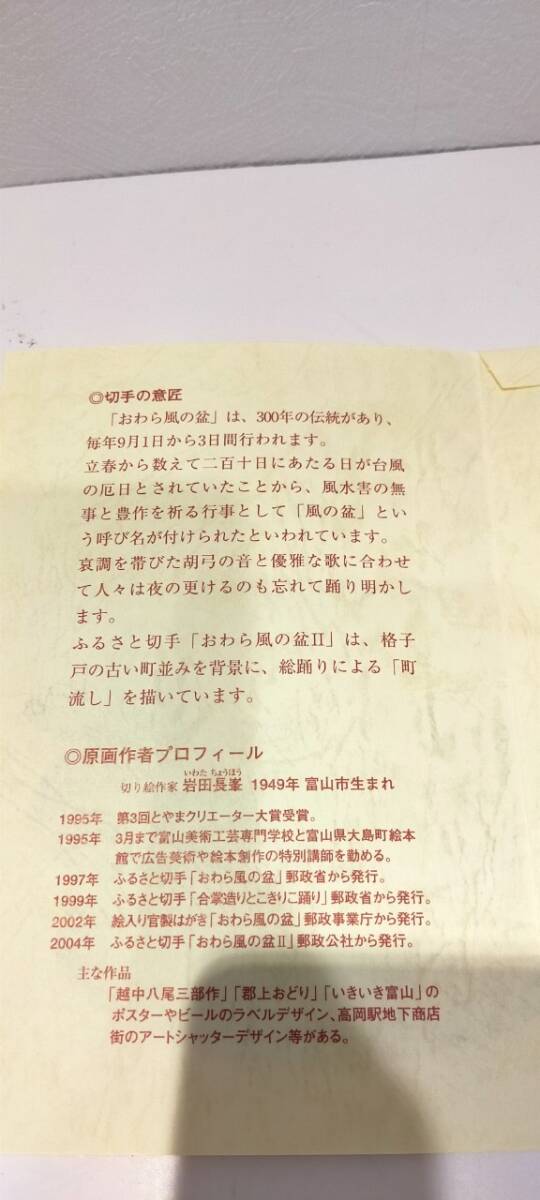 ◎切手の意匠
「おわら風の盆」は、300年の伝統があり、
毎年9月1日から3日間行われます。
立春から数えて二百十日にあたる日が台風
の厄日とされていたことから、風水害の無
事と豊作を祈る行事として「風の盆」とい
う呼び名が付けられたといわれています。
哀調を帯びた胡弓の音と優雅な歌に合わせ
て人々は夜の更けるのも忘れて踊り明かし
ます。
ふるさと切手「おわら風の盆II」は、格子
戸の古い町並みを背景に、総踊りによる「町
流し」を描いています。
◎原画作者プロフィール
いわた ちょうほう
切り絵作家 岩田長峯 1949年 富山市生まれ
1995年 第3回とやまクリエーター大賞受賞。
1995年 3月まで富山美術工芸専門学校と富山県大島町絵本
館で広告芸術や絵本創作の特別講師を勤める。
1997年 ふるさと切手「おわら風の盆」郵政省から発行。
1999年 ふるさと切手「合掌造りとこきりこ踊り」郵政省から発行。
2002年 絵入り官製はがき「おわら風の盆」郵政事業庁から発行。
2004年 ふるさと切手「おわら風の盆II」郵政公社から発行。
主な作品
「越中八尾三部作」「郡上おどり」「いきいき富山」の
ポスターやビールのラベルデザイン、高岡駅地下商店
街のアートシャッターデザイン等がある。